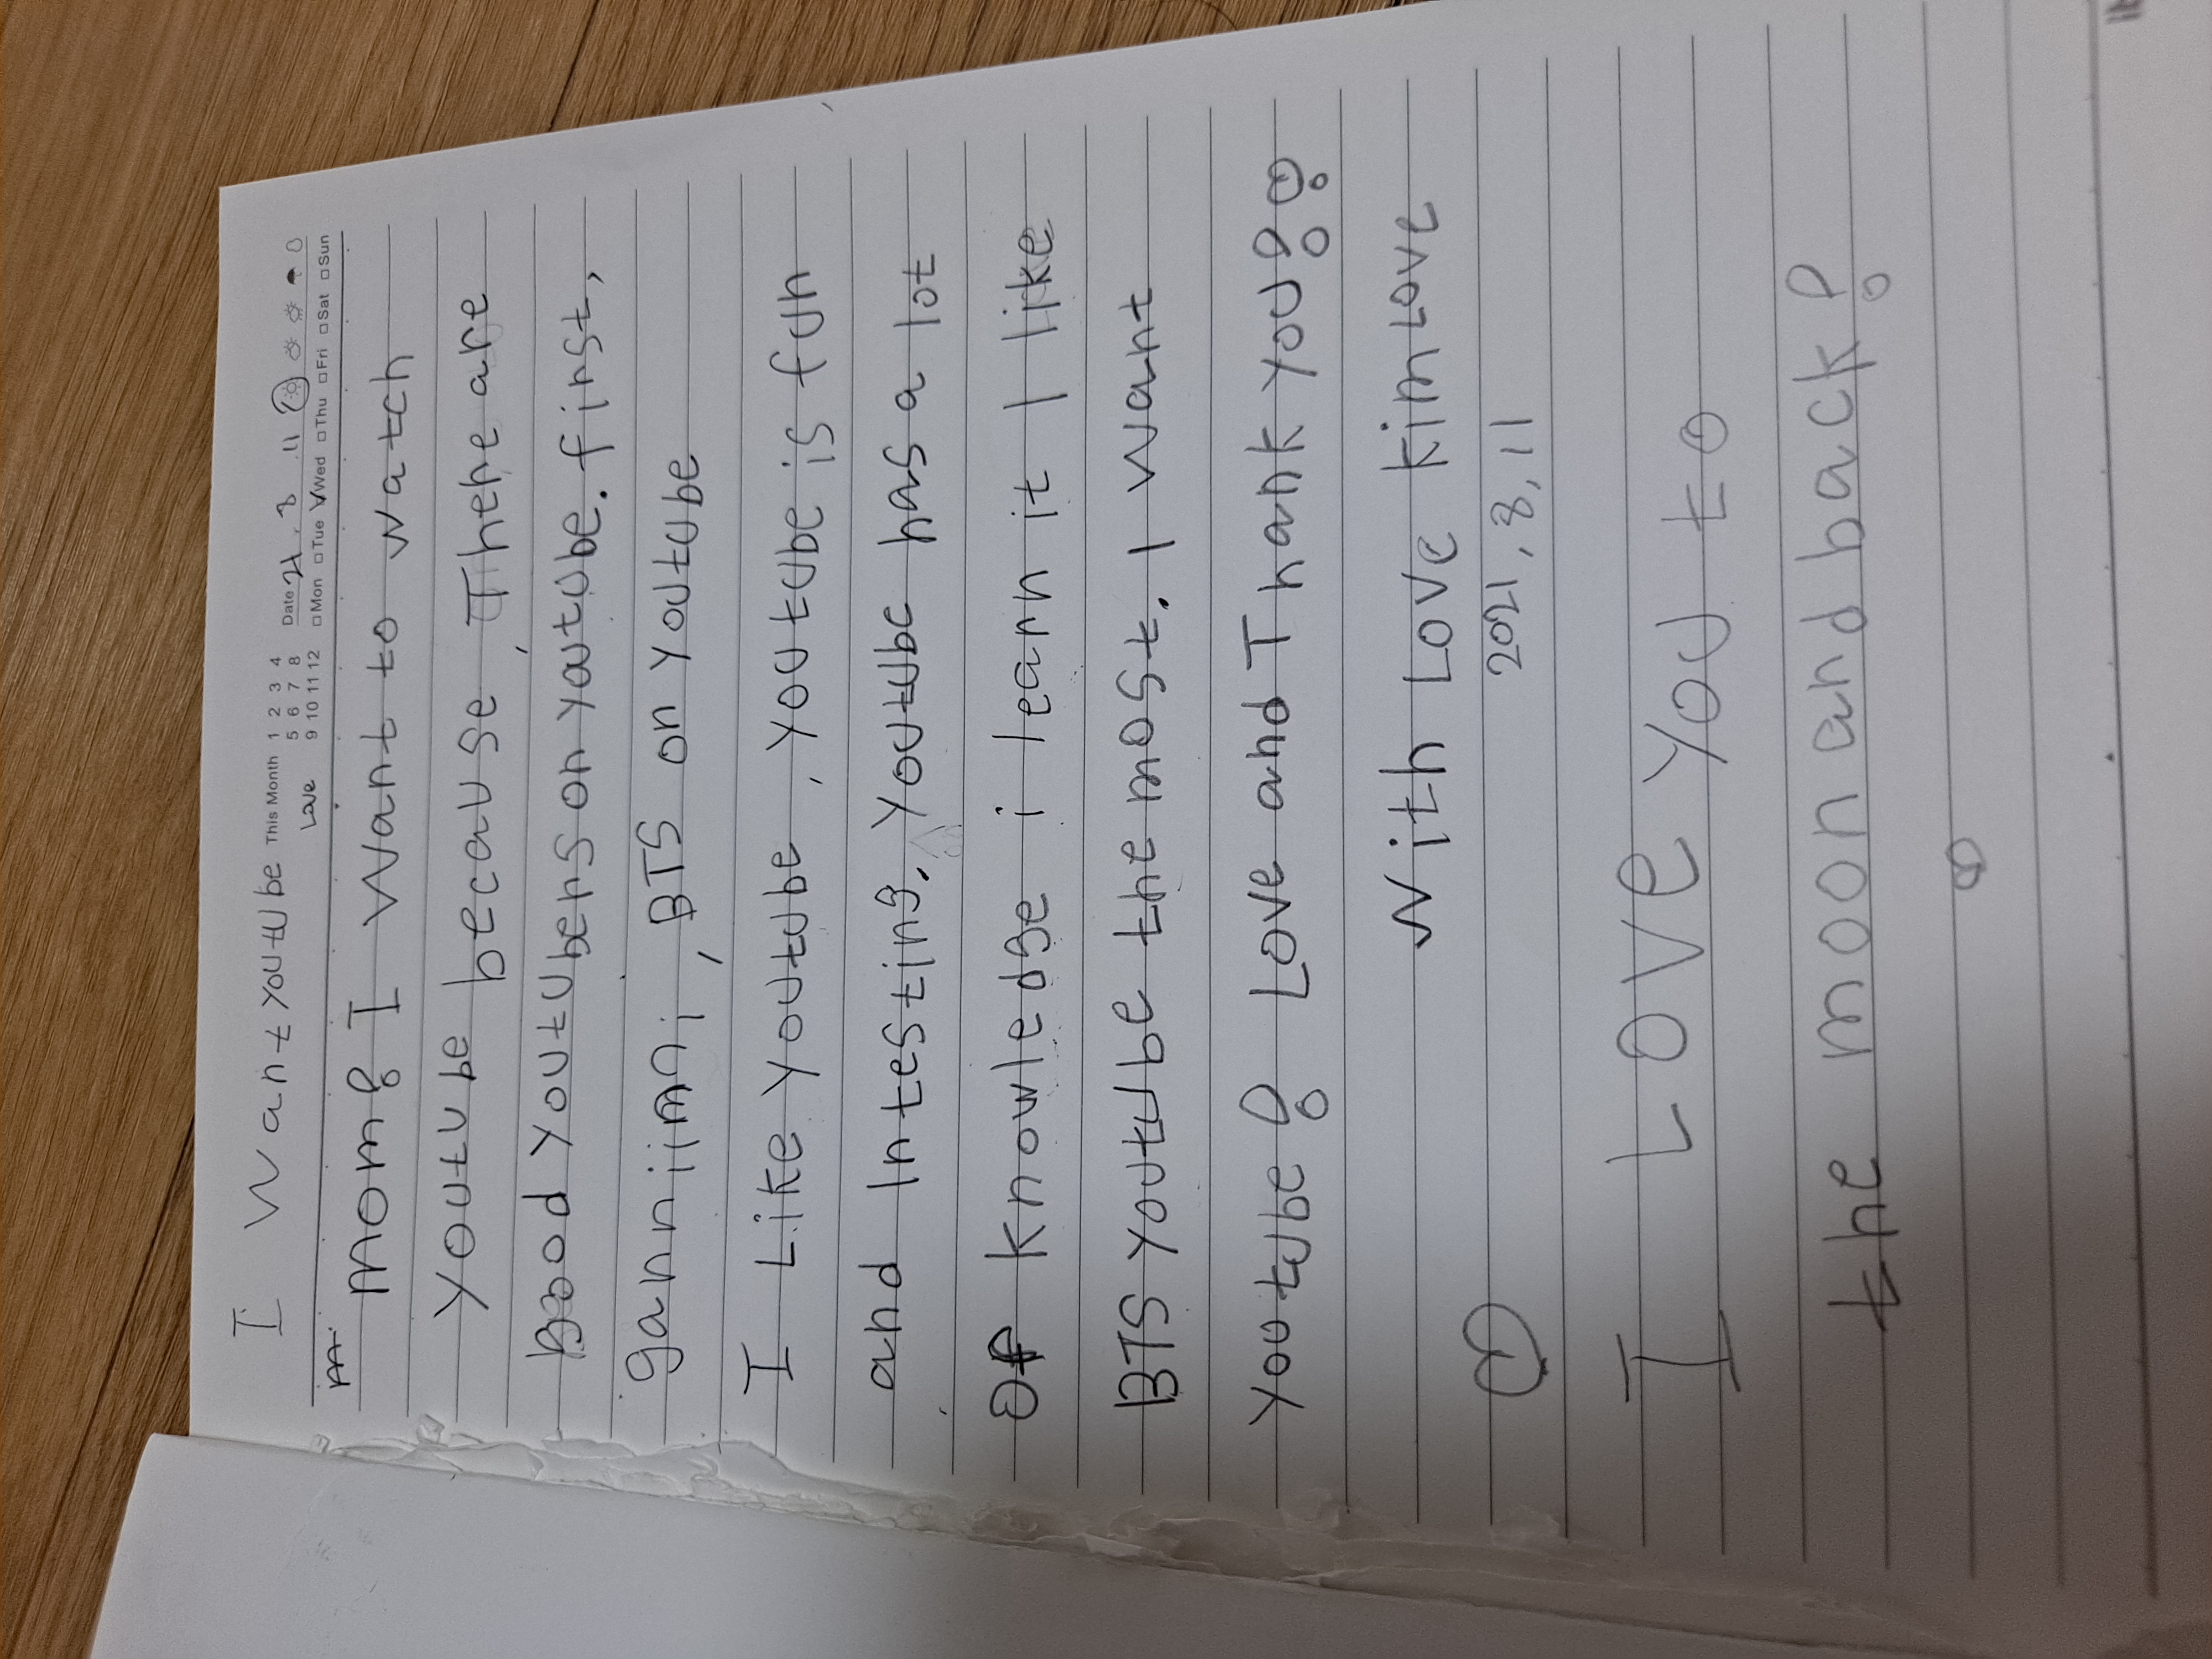 I want youtube This Month 1 2 3 4 Date 21. 8 .11
Love 5 6 7 8
9 10 11 12 □Mon □Tue √Wed □Thu □Fri □Sat □Sun
mom! I want to watch
youtube because There are
good youtubers on youtube. first,
ganniimni, BTS on youtube
I Like youtube, youtube is fun
and Intesting. youtube has a lot
of knowledge i learn it I like
BTS youtube the most. I want
youtube! Love and Thank you!
with Love kimLove
2021, 8, 11
I Love you to
the moon and back!